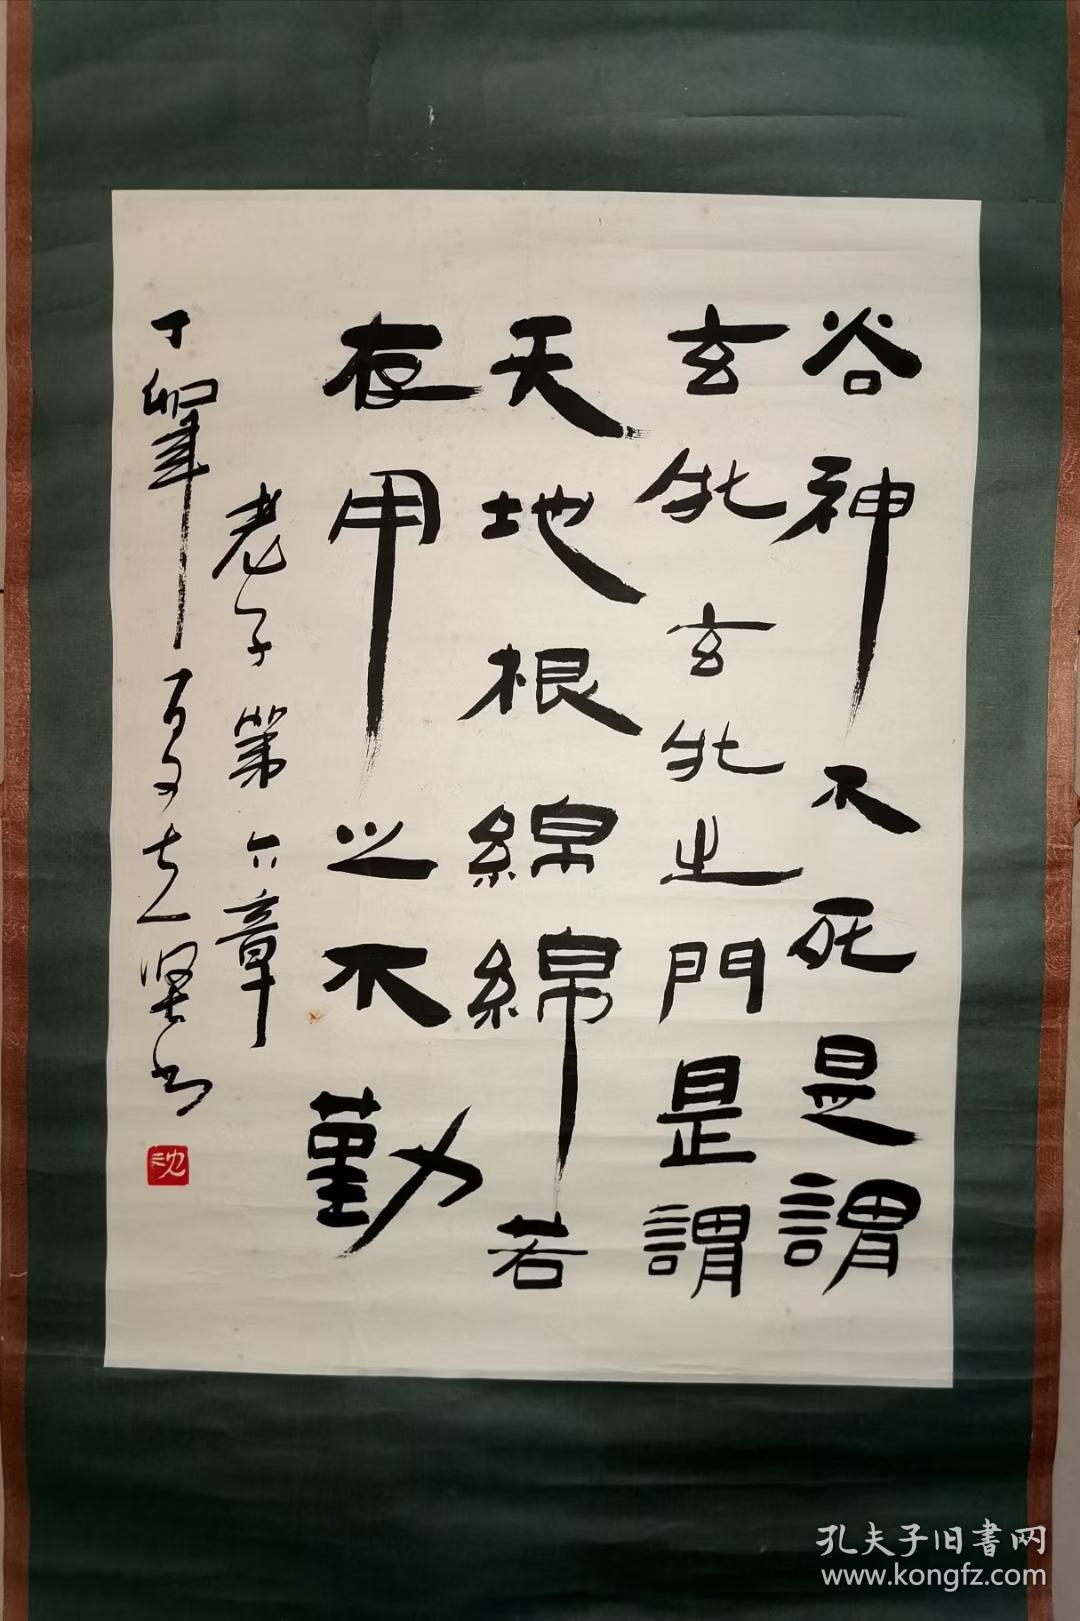 谷神不死是謂
玄牝玄牝之門是謂
天地根綿綿若
存用之不勤
老子第六章
丁卯年夏文
孔夫子旧書网
www.kongfz.com